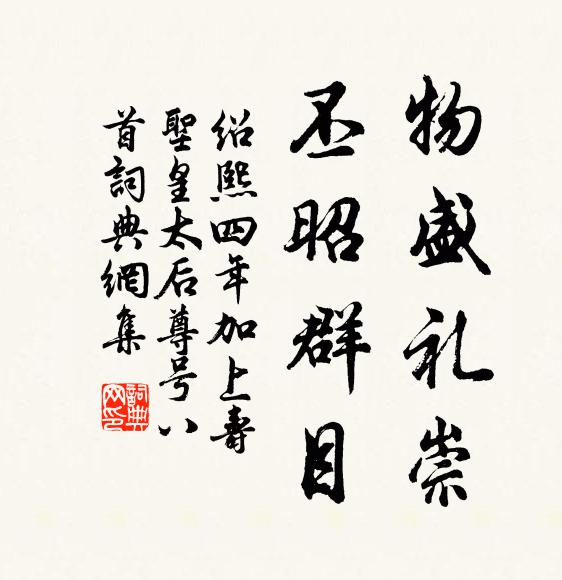 物盛礼崇
丕昭群目
绍熙四年加上壽
聖皇太后尊号八
首詞典網集
詞典网印